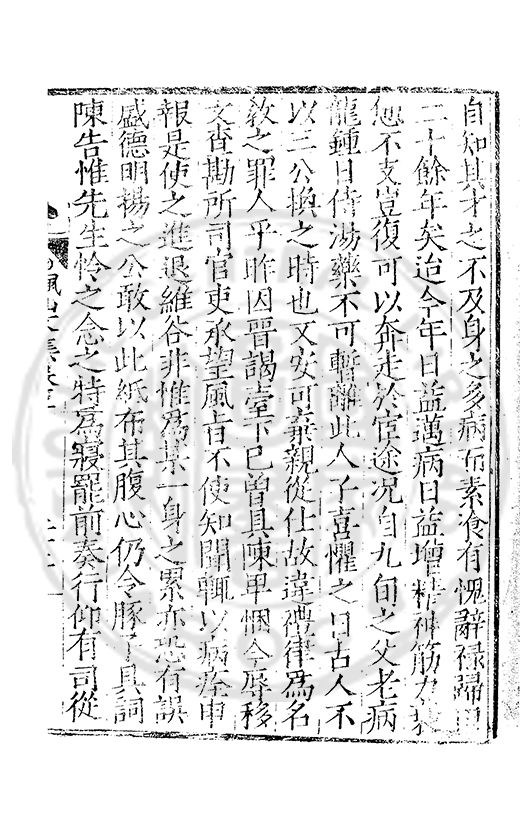 自知其才之不及身之多病而素飡有愧辭祿歸田
二十餘年矣迨今年日益邁病日益增精神筋力衰
憊不支豈復可以奔走於宦途况自九旬之父老病
龍鍾日侍湯藥不可暫離此人子喜懼之日古人不
以三公換之時也又安可棄親從仕故違禮律爲名
教之罪人乎昨因晉謁堂下已曽具陳卑悃今辱移
文查勘所司官吏承望風旨不使知聞輒以病痊申
報是使之進退維谷非惟爲某一身之累亦恐有誤
盛德明揚之公敢以此紙布其腹心仍令豚子具詞
陳告惟先生怜之念之特爲寢罷前奏行仰有司從
山文集卷